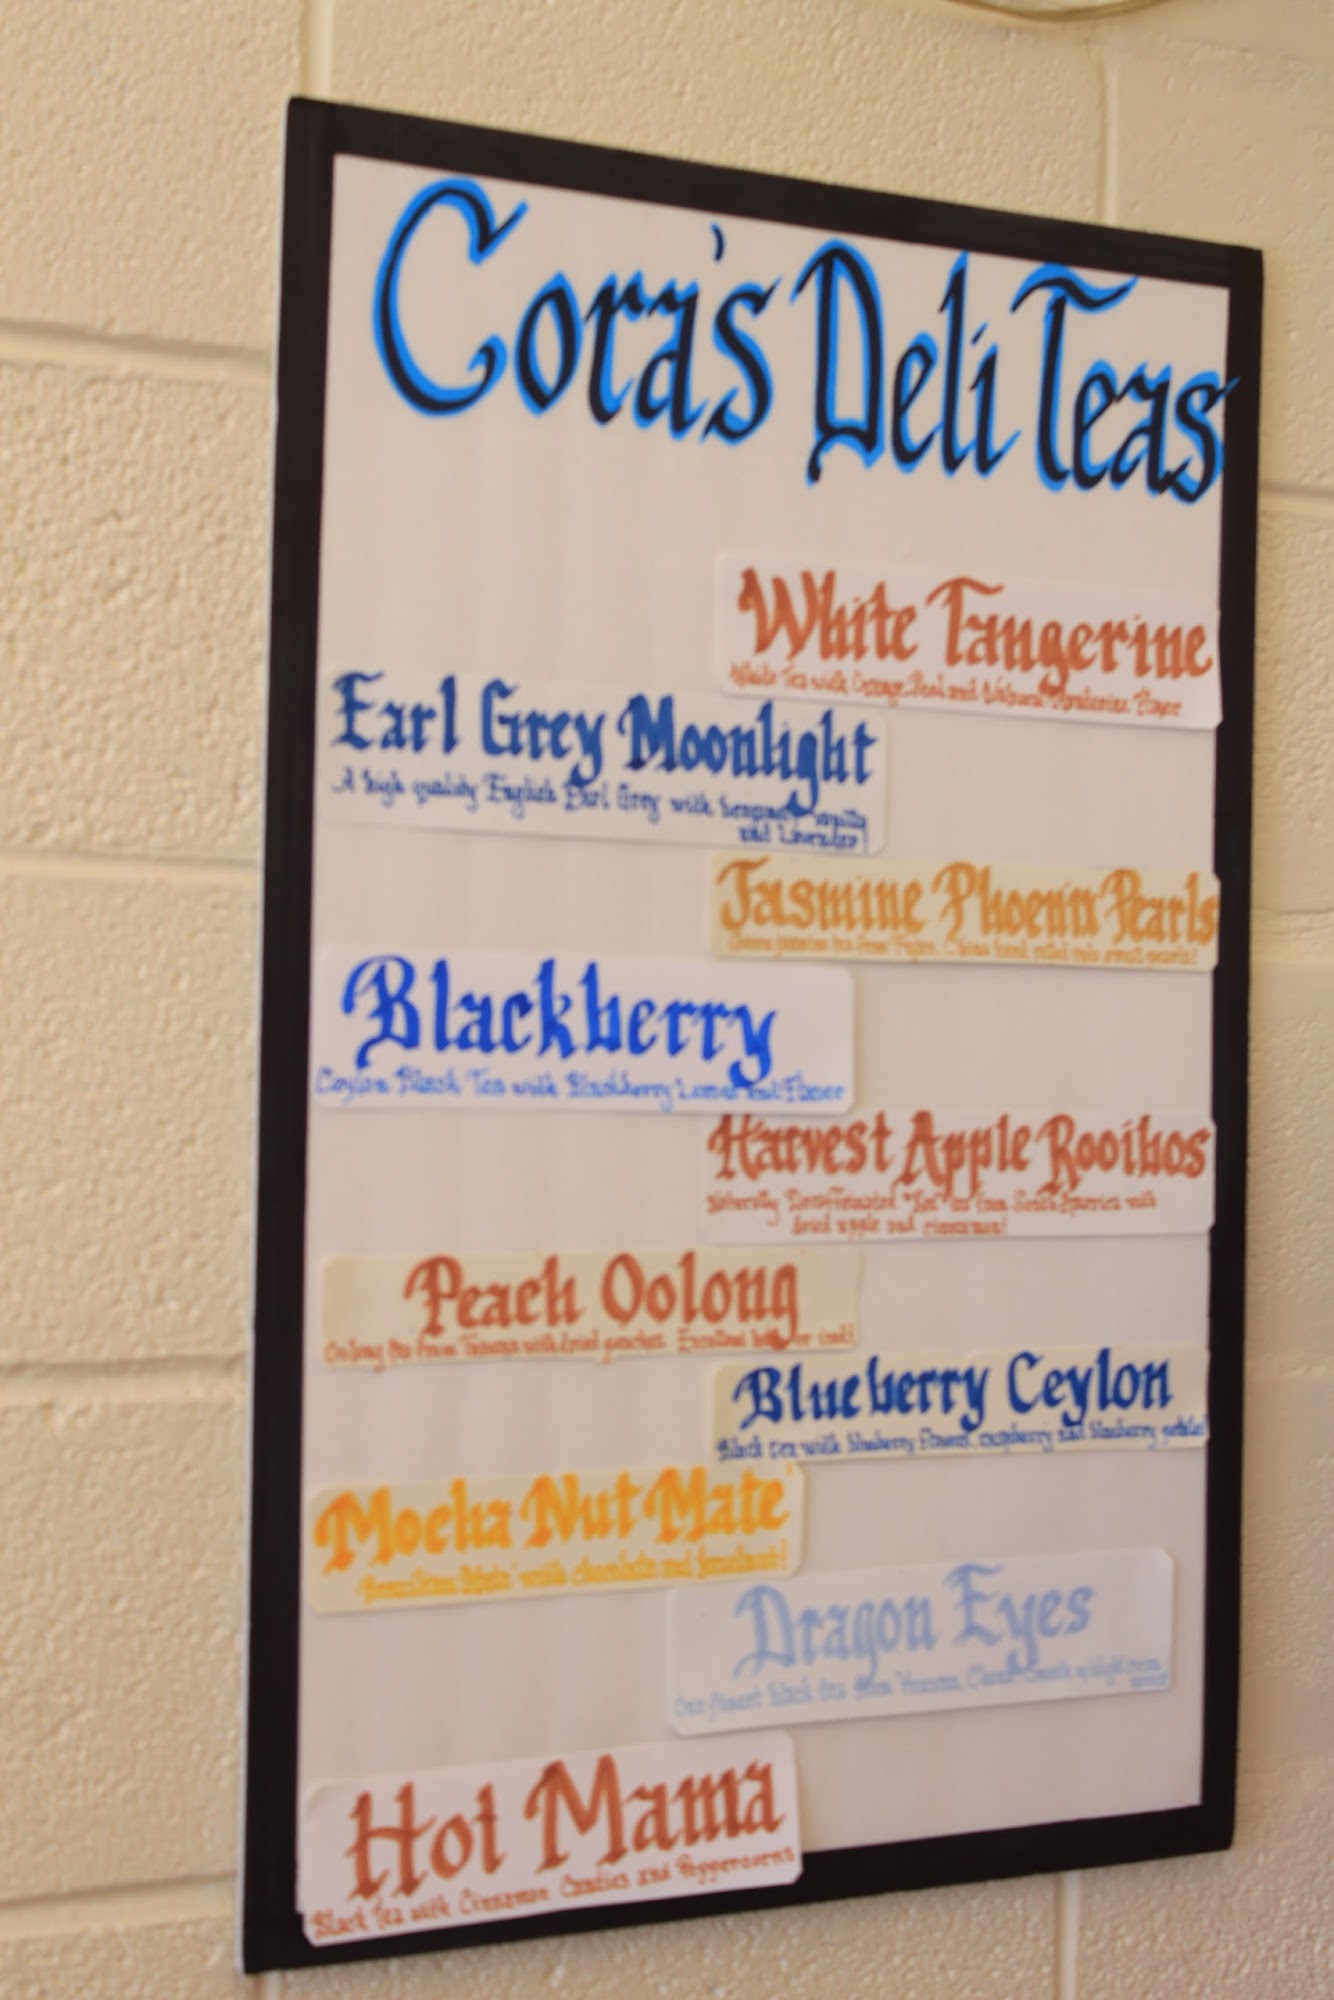 Cora's Deli Teas
White Tangerine
White Tea with Orange Peel and Natural Mandarine Flavor
Earl Grey Moonlight
A high quality English Earl Grey with bergamot vanilla
and Lavender!
Jasmine Phoenix Pearls
Green jasmine tea from Fujian, China hand rolled into small pearls!
Blackberry
Ceylon Black Tea with Blackberry Leaves and Flavor
Harvest Apple Rooibos
Naturally "Tea" from South with
dried apple and cinnamon!
Peach Oolong
Oolong tea from Taiwan with dried peaches. Excellent hot or iced!
Blueberry Ceylon
Black tea with blueberry flavor, raspberry and blueberry petals!
Mocha Nut Mate'
Brazilian Mate' with chocolate and hazelnut!
Dragon Eyes
Our finest black tea from Yunnan, China. Smooth w/slight
Hot Mama
Black Tea with Cinnamon Candies and Peppercorns